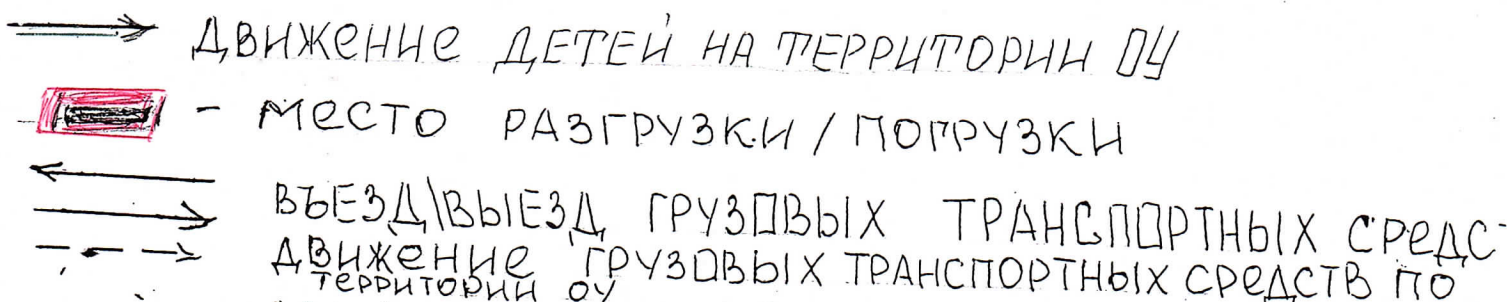 ДВИЖЕНИЕ ДЕТЕЙ НА ТЕРРИТОРИИ ОУ
- МЕСТО РАЗГРУЗКИ / ПОГРУЗКИ
ВЪЕЗД\ВЫЕЗД ГРУЗОВЫХ ТРАНСПОРТНЫХ СРЕДС-
ДВИЖЕНИЕ ГРУЗОВЫХ ТРАНСПОРТНЫХ СРЕДСТВ ПО
ТЕРРИТОРИИ ОУ